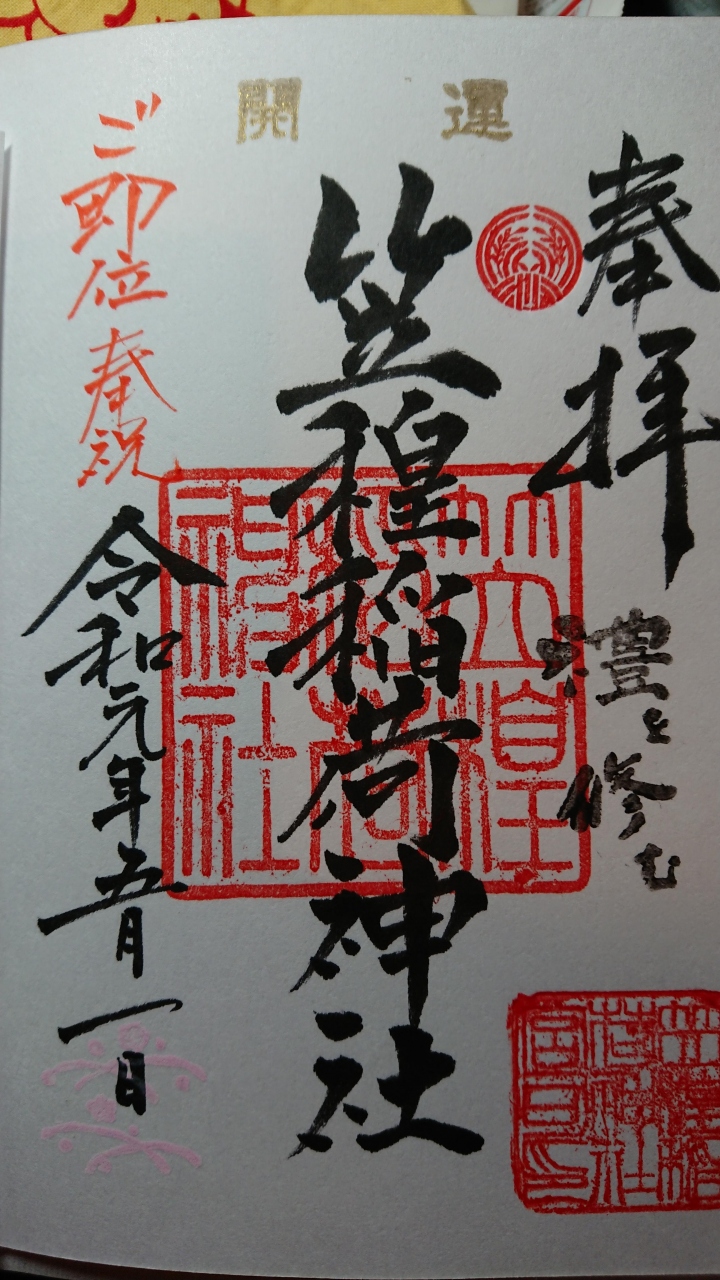 開運
奉拝
禮を修む
笠䅣稲荷神社
ご即位奉祝
令和元年五月一日
笠䅣
稲荷
神社
笠䅣稲
荷神社
宮司印